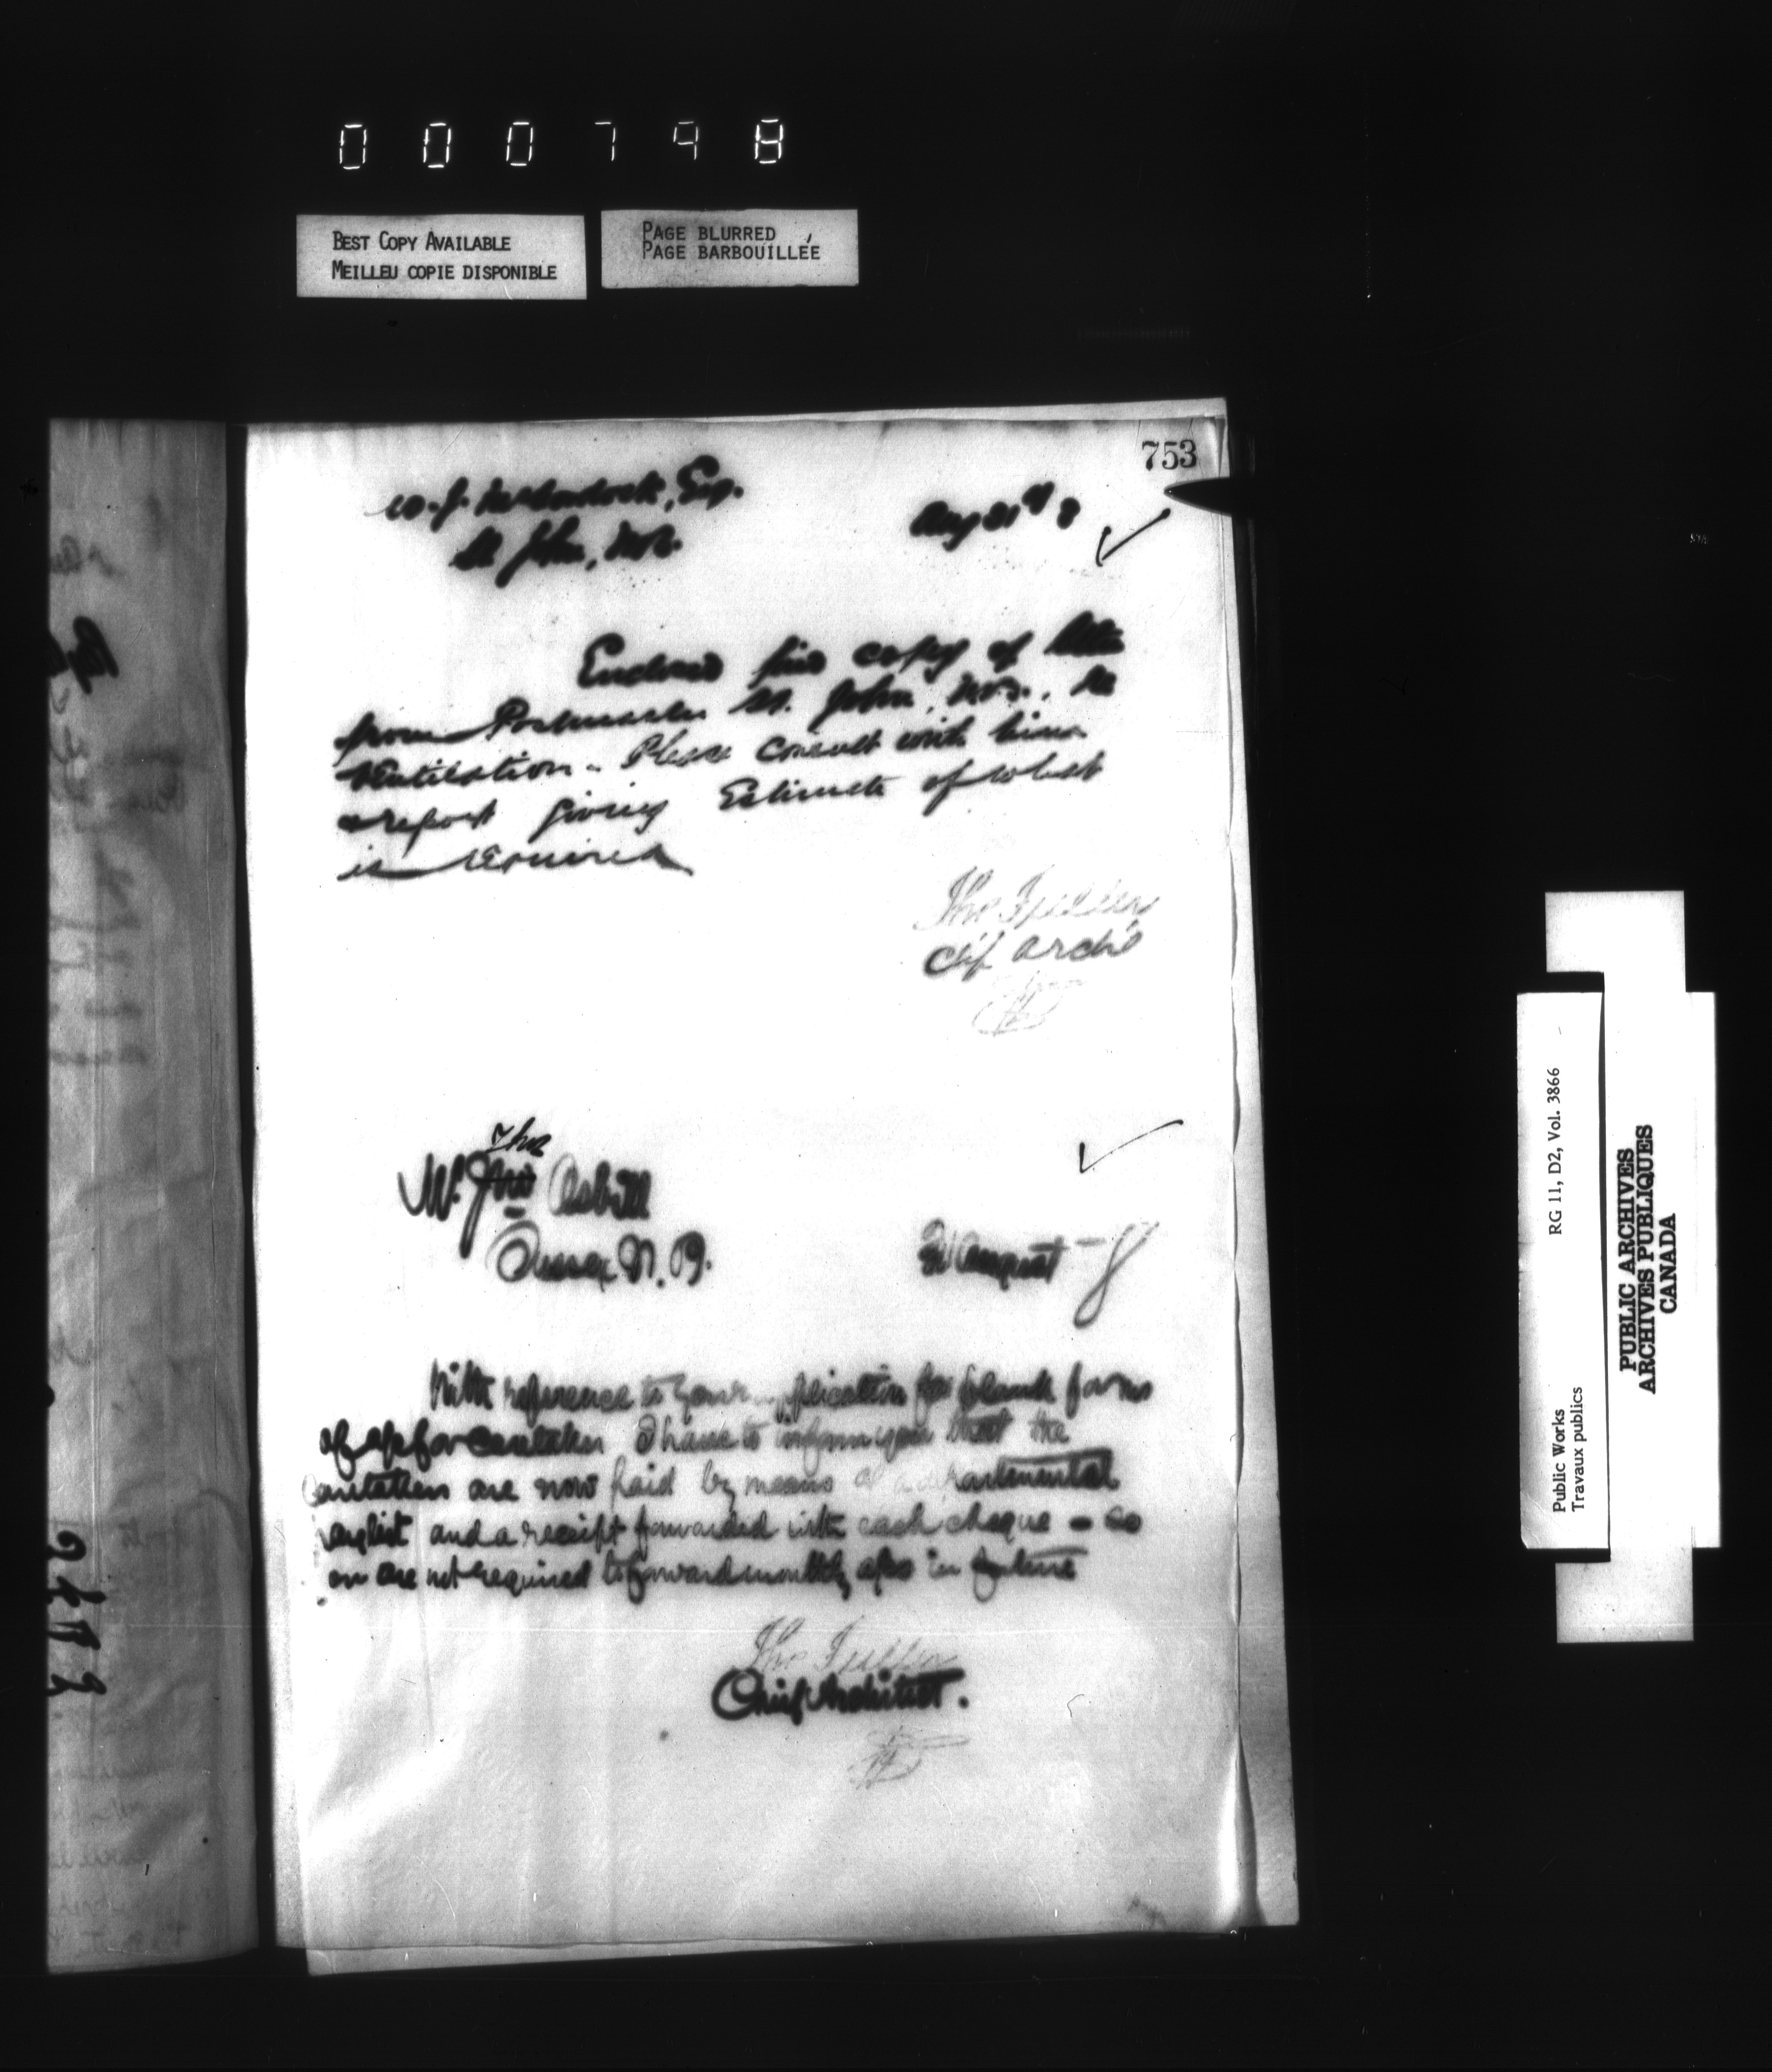 000798
BEST COPY AVAILABLE
MEILLEU COPIE DISPONIBLE
PAGE BLURRED
PAGE BARBOUILLÉE
753
W. J. Esq.
St John, N.B.
Aug 31st 8
Enclosed find copy of letter
from Postmaster St. John, N.B., re
Ventilation. Please consult with him
& report giving Estimate of what
is required
Tho Fuller
Chf Archt
Tho
Mr. Jno Asbill
Sussex N.B.
31 August - 8
With reference to your application for blank forms
of a/cs for caretaker I have to inform you that the
Caretakers are now paid by means of a departmental
and a receipt forwarded with each cheque - so
are not required to forward monthly a/cs in future
Tho Fuller
Chief Architect.
RG 11, D2, Vol. 3866
Public Works
Travaux publics
PUBLIC ARCHIVES
ARCHIVES PUBLIQUES
CANADA